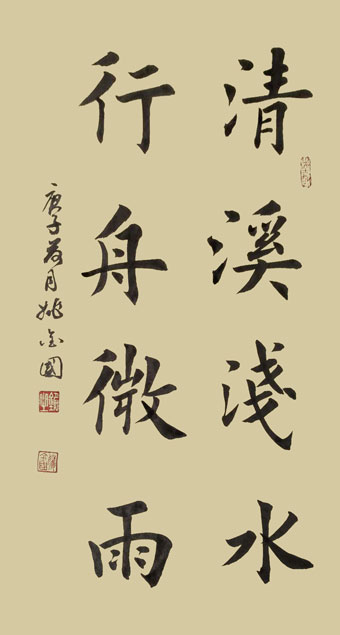 清溪淺水
行舟微雨
庚子荷月姚金國